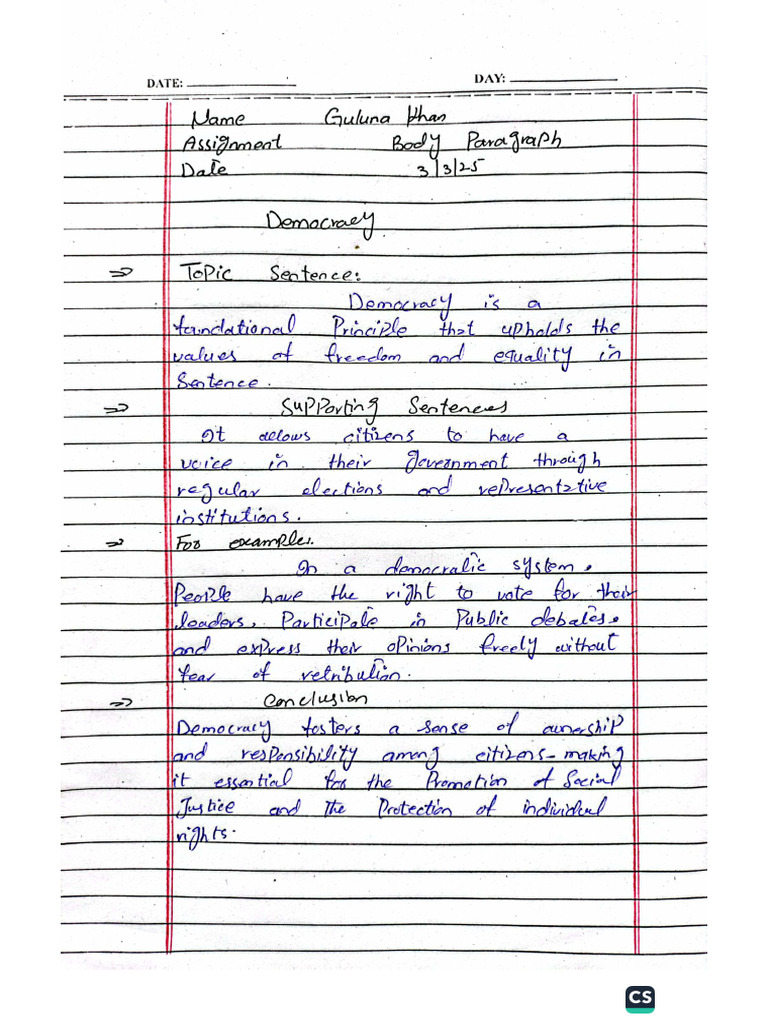 DATE: DAY:
Name Guluna khan
Assignment Body Paragraph
Date 3/3/25
Democracy
⇒ Topic Sentence:
Democracy is a
foundational Principle that upholds the
values of freedom and equality in
Sentence.
⇒ Supporting Sentences
It allows citizens to have a
voice in their government through
regular elections and representative
institutions.
⇒ For example:
In a democratic system,
People have the right to vote for their
leaders, Participate in Public debates,
and express their opinions freely without
fear of retribution.
⇒ Conclusion
Democracy fosters a sense of ownership
and responsibility among citizens-making
it essential for the Promotion of Social
Justice and the Protection of individual
rights.
CS